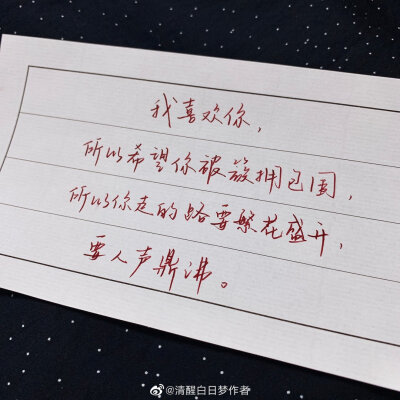 我喜欢你，
所以希望你被簇拥包围，
所以你走的路要繁花盛开，
要人声鼎沸。
@清醒白日梦作者